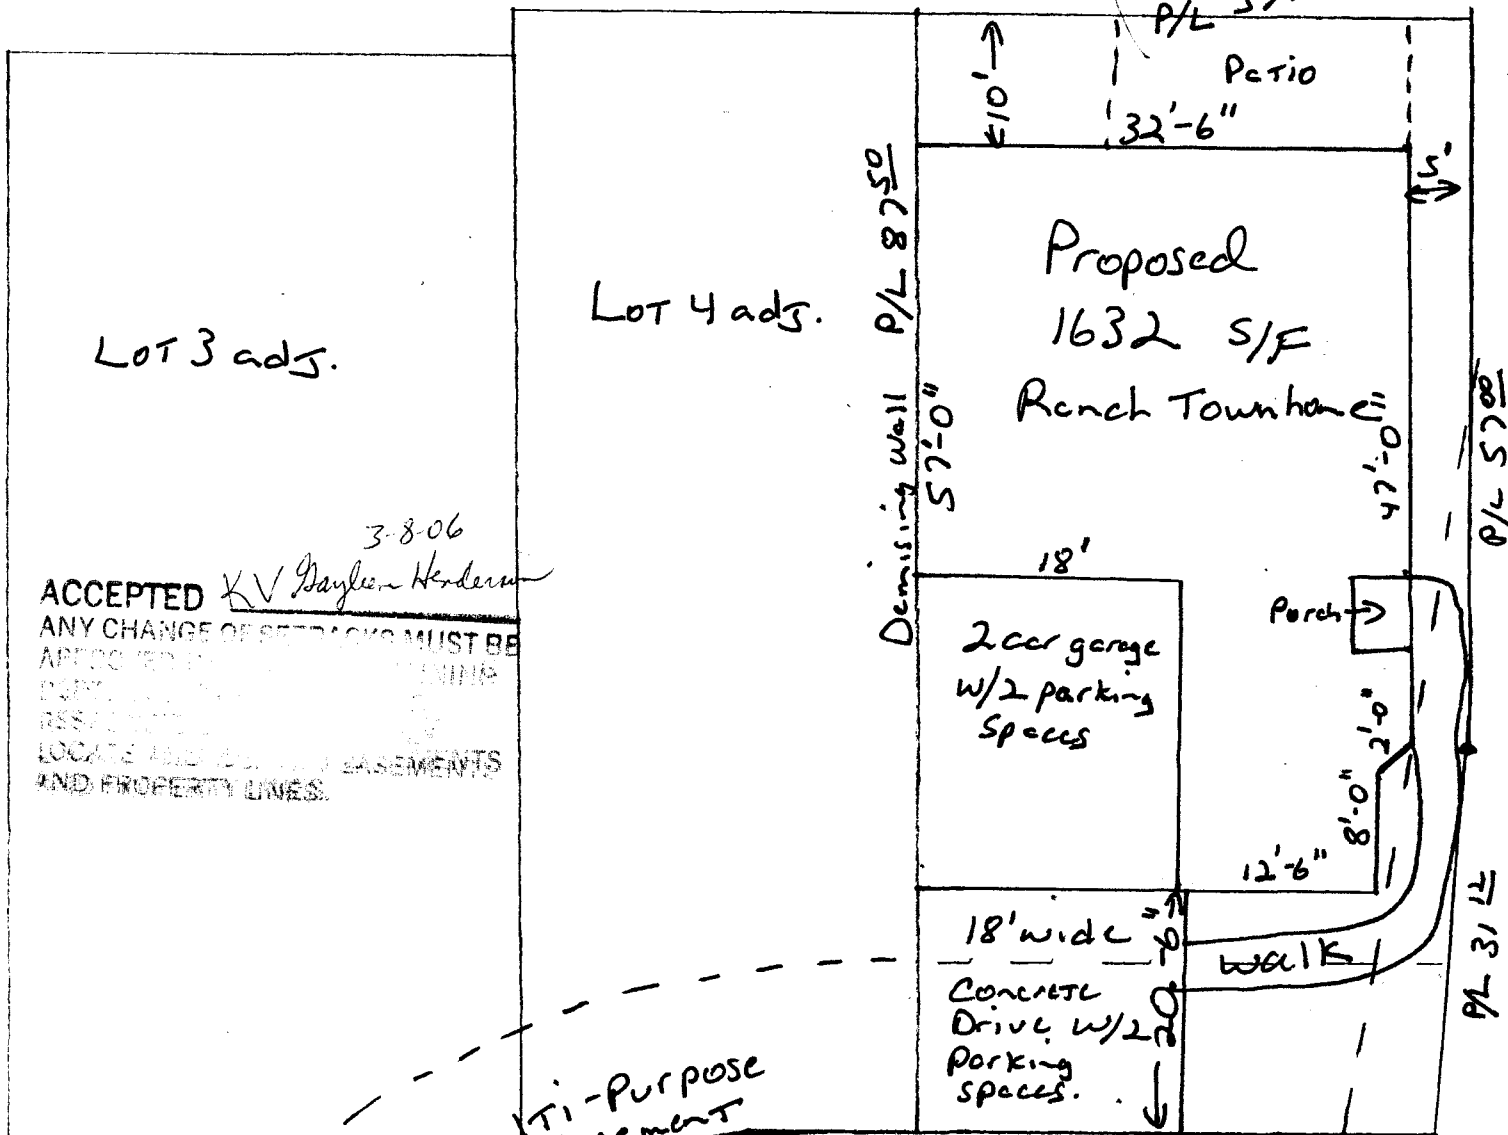 P/L
Patio
10'
32'-6"
5'
P/L 87 50
Proposed
1632 S/F
Ranch Townhome
Lot 4 adj.
Lot 3 adj.
Demising Wall
57'-0"
47'-0"
P/L 57 00
3-8-06
ACCEPTED KV Gayleen Henderson
ANY CHANGE OF SETBACKS MUST BE
LOCATE AND EASEMENTS
AND PROPERTY LINES.
18'
Porch
2 car garage
w/2 parking
spaces
2'-0"
8'-0"
12'-6"
18' wide
20'-6"
walk
Concrete
Drive w/2
parking
spaces.
P/L 31 12
Ti-Purpose
ement